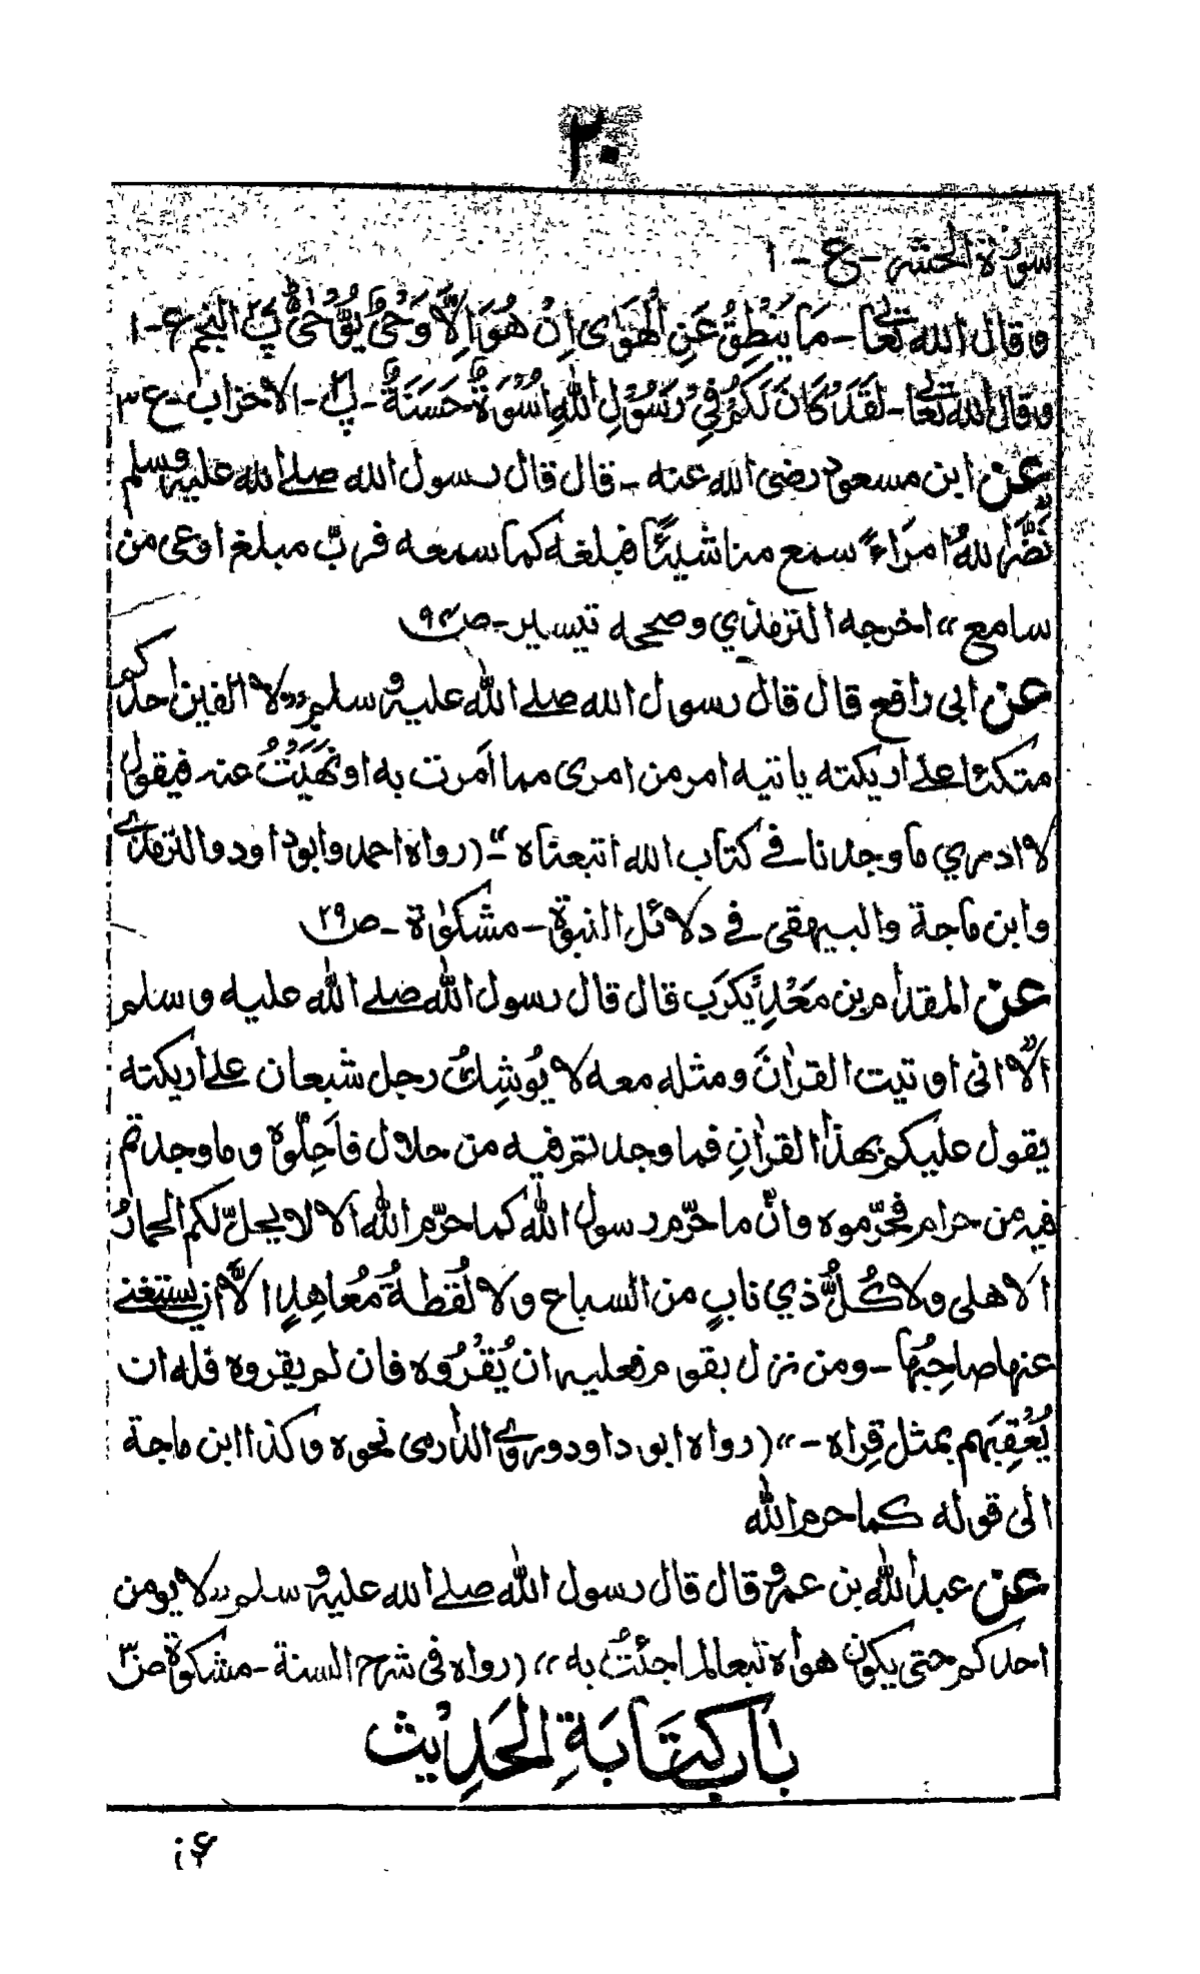 ٢٠
سورة الحشر - ع - ١
وقال الله تعالى - مَا يَنْطِقُ عَنِ الْهَوٰى اِنْ هُوَ اِلَّا وَحْىٌ يُّوْحٰى پ النجم ع - ١
وقال الله تعالى - لَقَدْ كَانَ لَكُمْ فِيْ رَسُوْلِ اللهِ اُسْوَةٌ حَسَنَةٌ - پ٢١ - الاحزاب - ع ٣
عن ابن مسعود رضى الله عنه - قال قال رسول الله صلے الله عليه وسلم
نَضَّرَ اللهُ امرَاءً سمع منا شيئًا فبلغه كما سمعه فربّ مبلغ اوعى من
سامع ،، اخرجه الترمذي وصححه تيسير - ص
عن ابى رافع قال قال رسول الله صلے الله عليه وسلم ,, لا الفين احدكم
متكئا علے اريكته ياتيه امر من امرى مما اَمرت به او نَهَيْتُ عنه فيقول
لا ادري ما وجدنا فے كتاب الله اتبعناه ،، - (رواه احمد وابو داود والترمذے
وابن ماجة والبيهقى فے دلائل النبوة - مشكوٰة - ص ٢٩
عن المقدام بن مَعْدِيْكَرَب قال قال رسول الله صلے الله عليه وسلم
الَا انى اوتيت القراٰنَ ومثله معه لا يُوشِكُ رجل شبعان علے اريكته
يقول عليكم بهذا القراٰنِ فما وجدتم فيه من حلال فاَحِلّوه وما وجدتم
فيه من حرام فحرّموه وانّ ما حرّم رسول الله كما حرّم الله الا لا يحلّ لكم الحمارُ
الاهلى ولا كُلُّ ذي نابٍ من السباع ولا لُقطةُ مُعاهِدٍ الَّا ان يستغنے
عنها صاحِبُها - ومن نزل بقوم فعليهم ان يُقْرُوْه فان لم يقروه فله ان
يُعْقِبَهم بمثل قِراه - ،، (رواه ابو داود وروے الدارمى نحوه وكذا ابن ماجة
الى قوله كما حرم الله
عن عبد الله بن عمرو قال قال رسول الله صلے الله عليه وسلم ,, لا يومن
احدكم حتى يكون هواه تبعا لما جئتُ به ،، (رواه فى شرح السنة - مشكوة ص
بَابُ كِتَابَةِ الْحَدِيْث